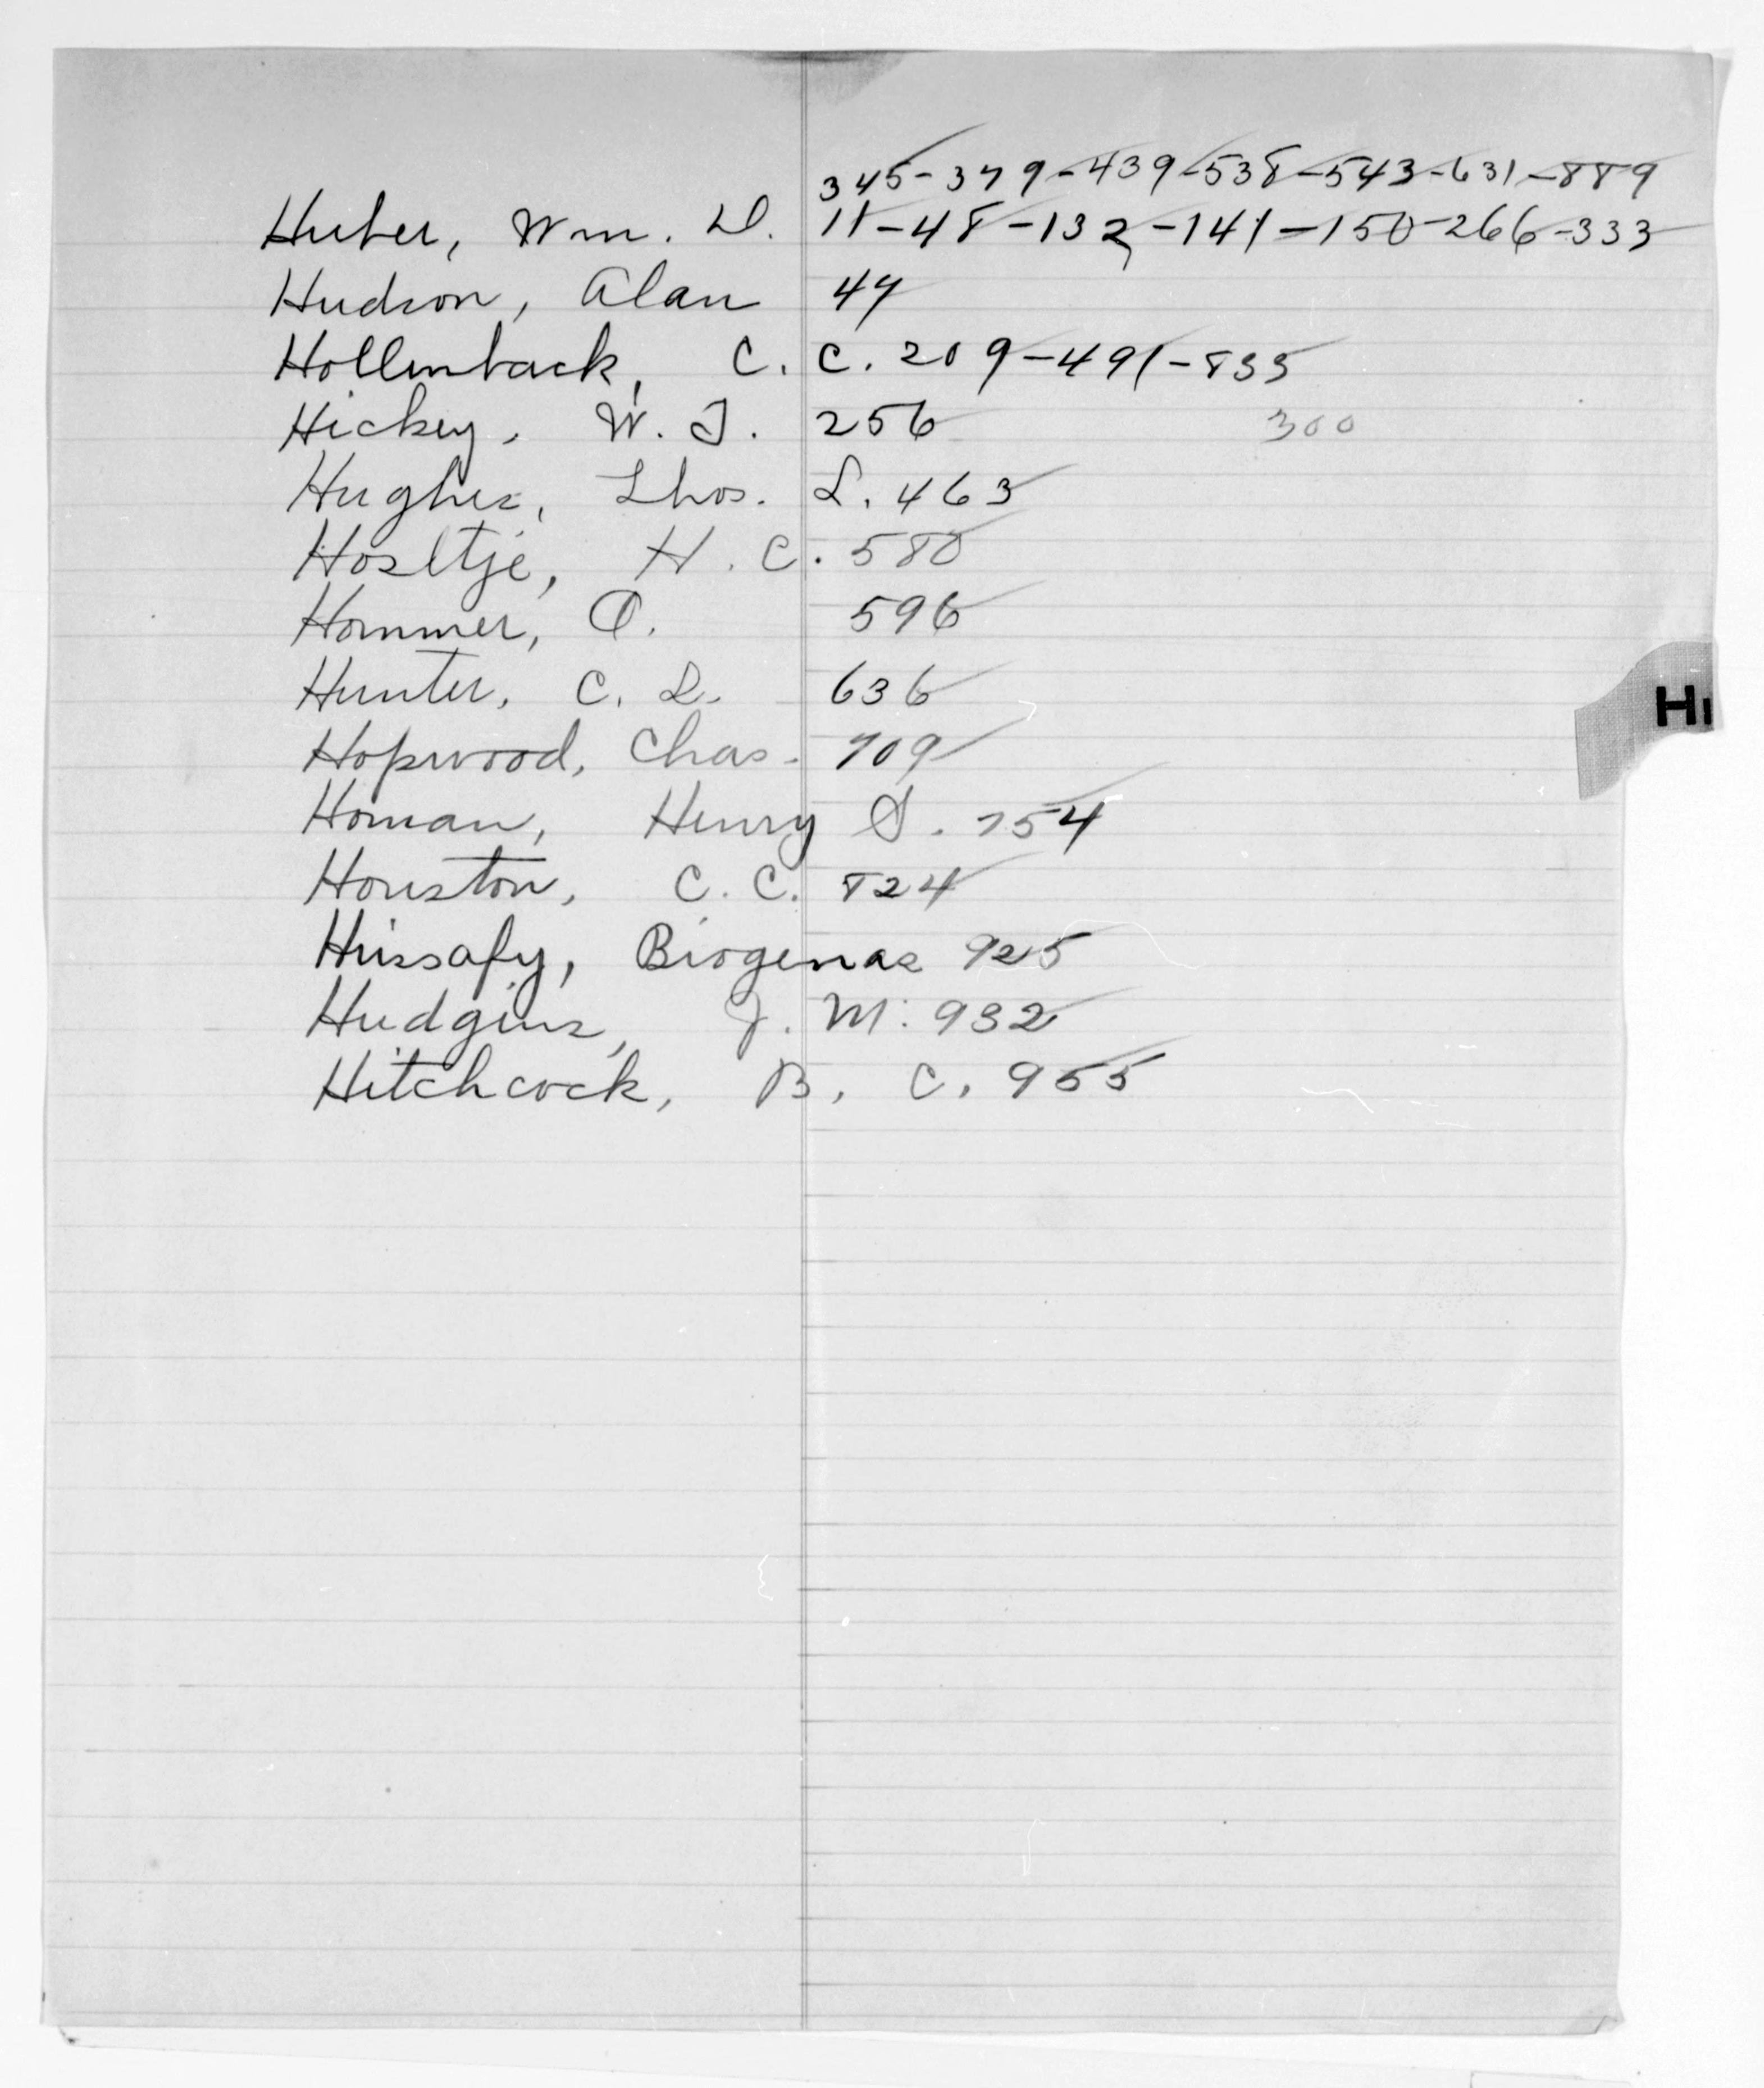 345-379-439-538-543-631-889
Huber, Wm. D. 11-48-132-141-150-266-333
Hudson, Alan 47
Hollenback, C. C. 209-491-835
Hickey, W. J. 256 300
Hughes, Thos. L. 463
Hosltje, H. C. 580
Hommer, O. 596
Hunter, C. L. 636
Hopwood, Chas. 709
Homan, Henry S. 754
Houston, C. C. 824
Hussafy, Biogenas 925
Hudgins, J. M. 932
Hitchcock, B. C. 955
Hi